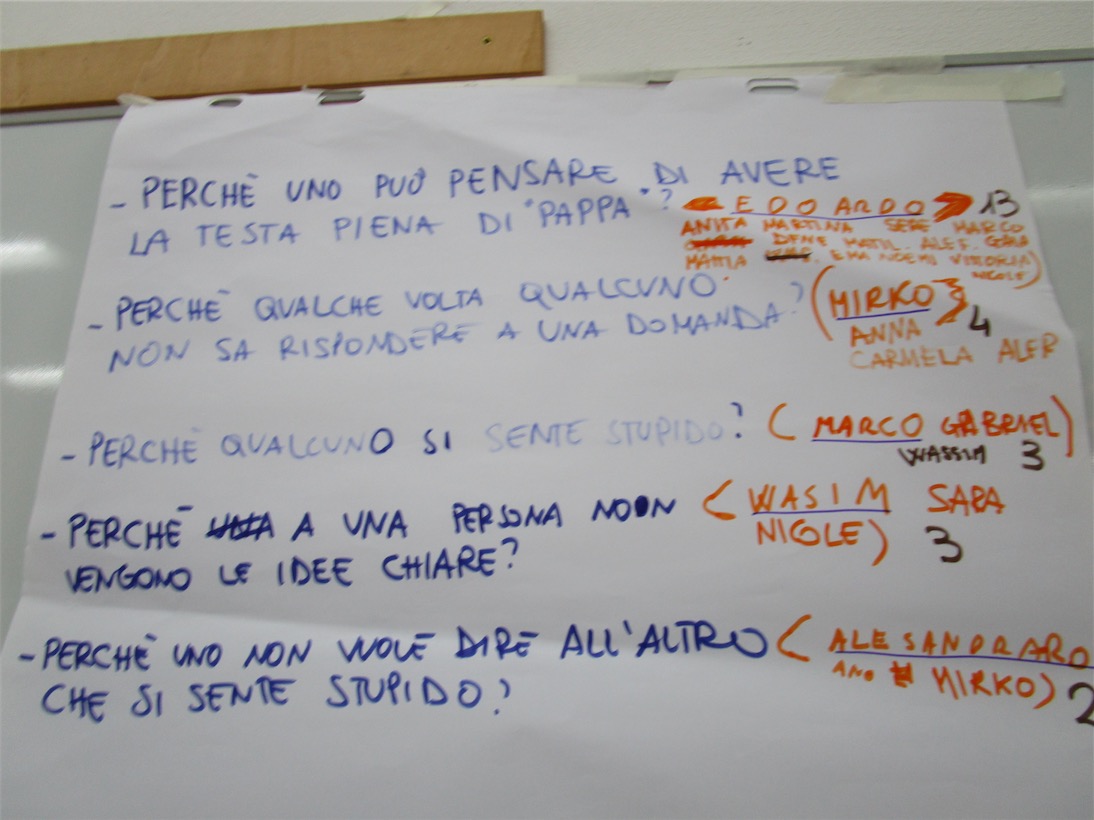 - PERCHÈ UNO PUÒ PENSARE DI AVERE
LA TESTA PIENA DI "PAPPA"? EDOARDO 13
ANITA MARTINA SERE MARCO
DENE MATIL. ALEF. GAIA
MATTIA EMA NOEMI VITTORIA
NICOLE)
- PERCHÈ QUALCHE VOLTA QUALCUNO
NON SA RISPONDERE A UNA DOMANDA? (MIRKO 4
ANNA
CARMELA ALER
- PERCHÈ QUALCUNO SI SENTE STUPIDO? (MARCO GABRIEL)
WASSIM 3
- PERCHÈ A UNA PERSONA NOON (WASIM SARA
VENGONO LE IDEE CHIARE? NICOLE) 3
- PERCHÈ UNO NON VUOLE DIRE ALL'ALTRO (ALESANDRARO
CHE SI SENTE STUPIDO? MIRKO) 2